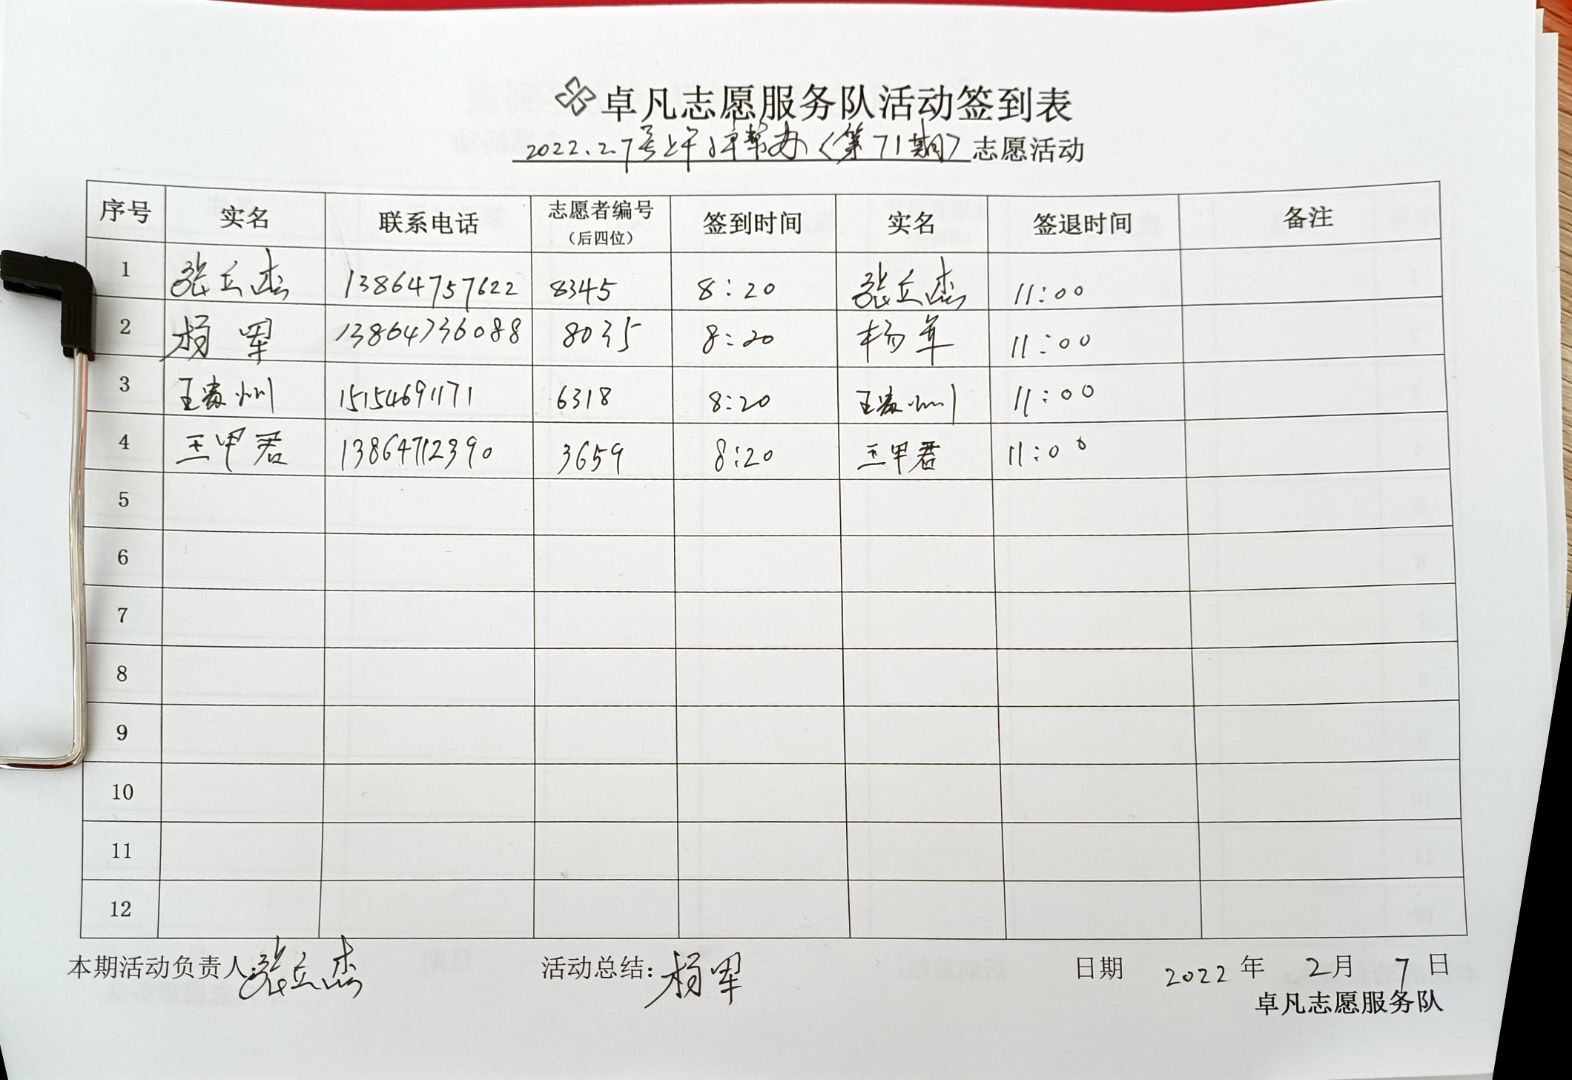 卓凡志愿服务队活动签到表
2022.2.7号上午 帮办（第71期）志愿活动
序号 实名 联系电话 志愿者编号（后四位） 签到时间 实名 签退时间 备注
1 张立杰 13864757622 8345 8:20 张立杰 11:00
2 杨军 13864736088 8035 8:20 杨军 11:00
3 王贵州 15154691171 6318 8:20 王贵州 11:00
4 王甲君 13864712390 3659 8:20 王甲君 11:00
5
6
7
8
9
10
11
12
本期活动负责人：张立杰 活动总结：杨军 日期 2022年2月7日
卓凡志愿服务队